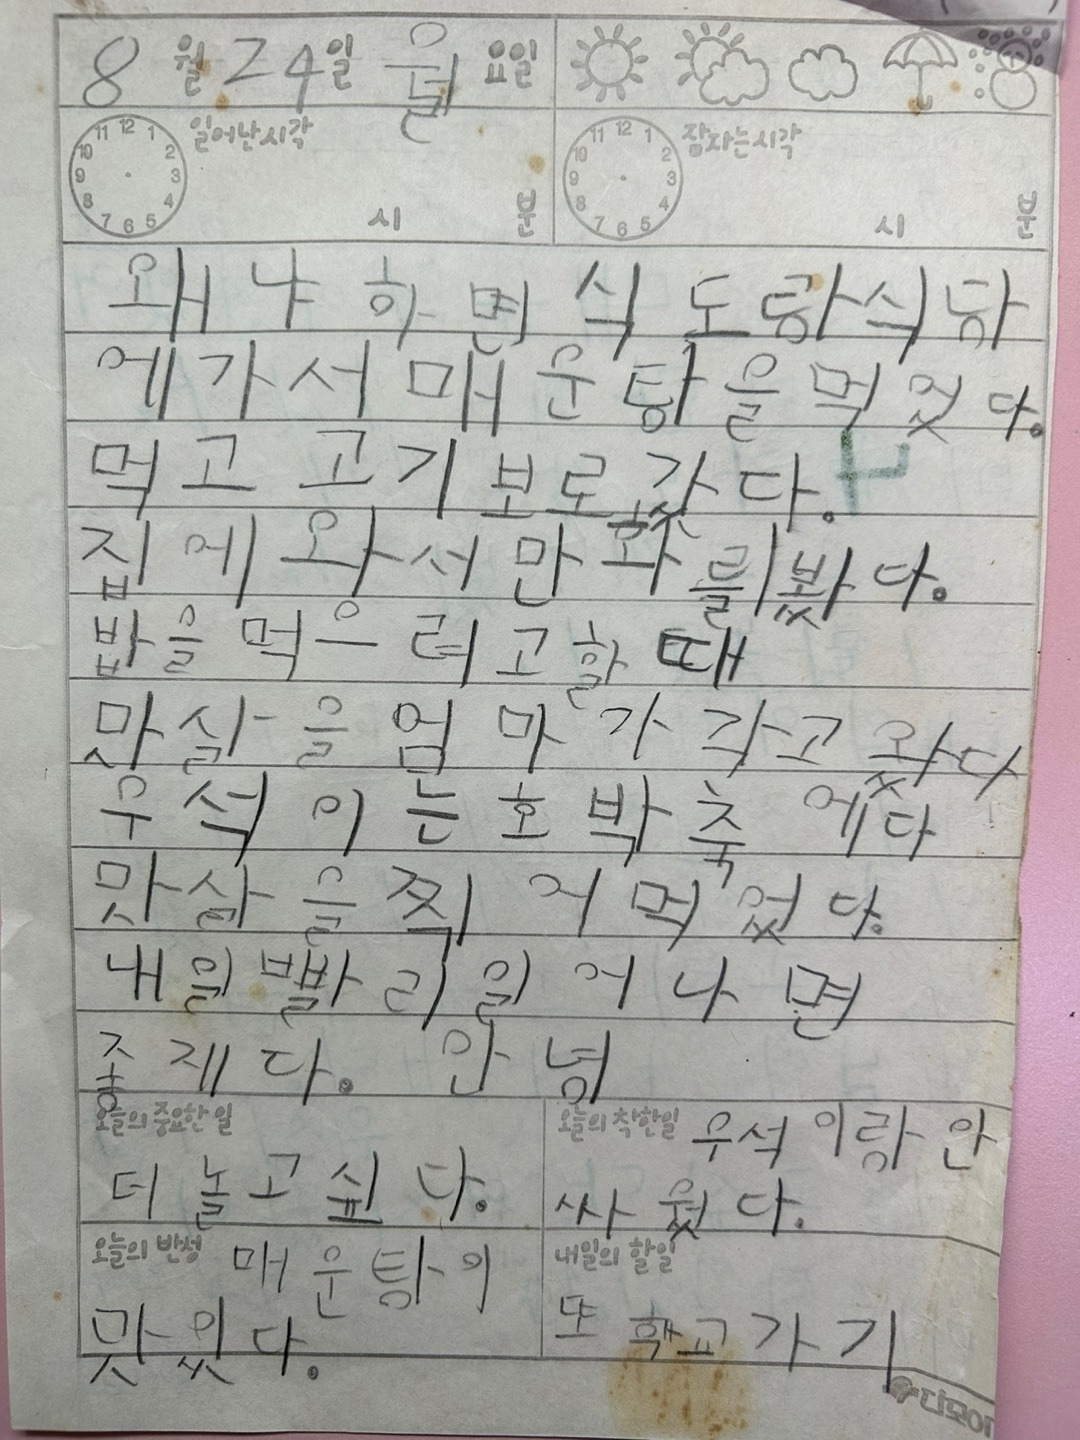 8 월 24 일 월 요일
일어난시각
시 분
잠자는시각
시 분
왜 냐 하 면 식 도 랑 식 당
에 가 서 매 운 탕 을 먹 었 다.
먹 고 고 기 보 로 갔 다.
집 에 와 서 만 화 를 봤 다.
밥 을 먹 으 려 고 할 때
맛 살 을 엄 마 가 각 고 왔 다
우 석 이 는 호 박 죽 에 다
맛 살 을 찍 어 먹 었 다.
내 일 빨 리 일 어 나 면
좋 게 다. 안 녕
오늘의 중요한 일
더 놀 고 싶 다.
오늘의 착한일 우석 이랑 안
싸 웠 다.
오늘의 반성 매 운 탕 이
맛 있 다.
내일의 할일
또 학 교 가 기